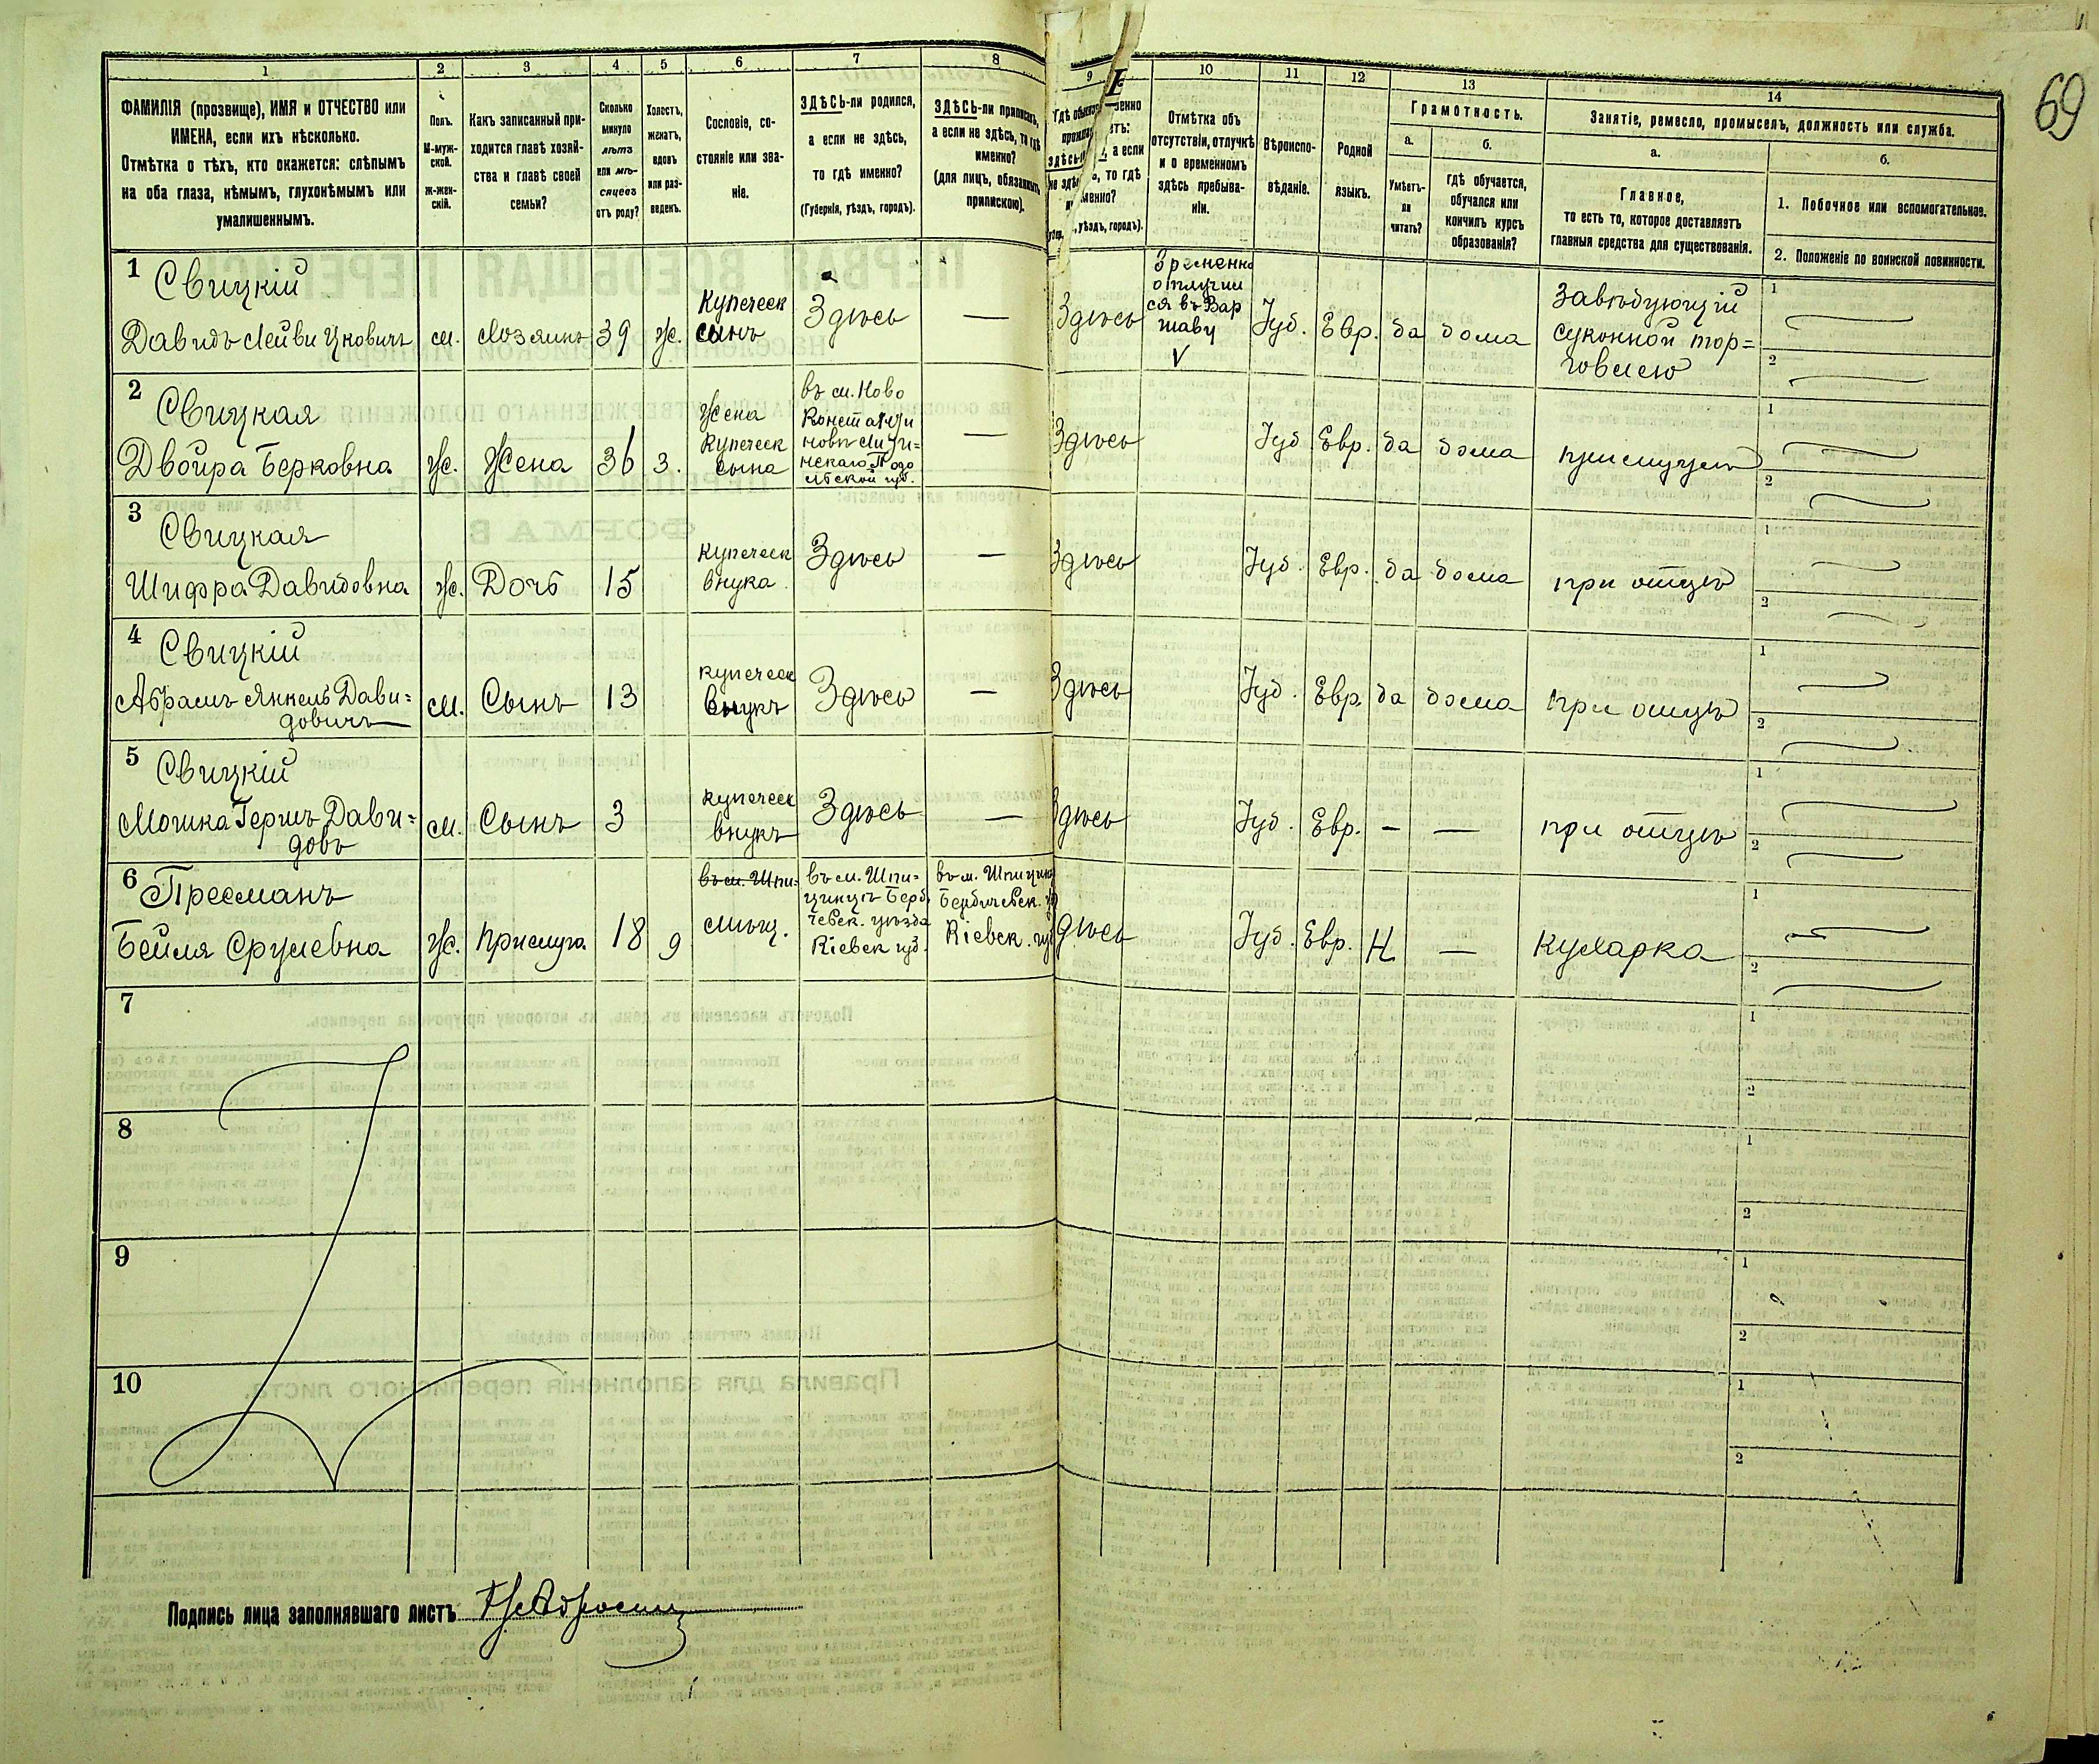 69
1 2 3 4 5 6 7 8 9 10 11 12 13 14
ФАМИЛІЯ (прозвище), ИМЯ и ОТЧЕСТВО или
ИМЕНА, если ихъ нѣсколько.
Отмѣтка о тѣхъ, кто окажется: слѣпымъ
на оба глаза, нѣмымъ, глухонѣмымъ или
умалишеннымъ.
Полъ.
М-муж-
ской.
ж-жен-
скій.
Какъ записанный при-
ходится главѣ хозяй-
ства и главѣ своей
семьи?
Сколько
минуло
лѣтъ
или мѣ-
сяцевъ
отъ роду?
Холостъ,
женатъ,
вдовъ
или раз-
веденъ.
Сословіе, со-
стояніе или зва-
ніе.
ЗДѢСЬ-ли родился,
а если не здѣсь,
то гдѣ именно?
(Губернія, уѣздъ, городъ).
ЗДѢСЬ-ли приписанъ,
а если не здѣсь, то гдѣ
именно?
(для лицъ, обязанныхъ
припискою).
Гдѣ
а если
то гдѣ
уѣздъ, городъ).
Отмѣтка объ
отсутствіи, отлучкѣ
и о временномъ
здѣсь пребыва-
ніи.
Вѣроиспо-
вѣданіе.
Родной
языкъ.
Грамотность.
а.
Умѣетъ-
ли
читать?
б.
гдѣ обучается,
обучался или
кончилъ курсъ
образованія?
Занятіе, ремесло, промыселъ, должность или служба.
а.
Главное,
то есть то, которое доставляетъ
главныя средства для существованія.
б.
1. Побочное или вспомогательное.
2. Положеніе по воинской повинности.
1
Свицкій
Давидъ Лейви Ицковичъ
м.
Хозяинъ
39
Ж.
Купеческ
сынъ
Здѣсь
—
Здѣсь
Временно
отлучил
ся въ Вар
шаву
V
Іуд.
Евр.
да
дома
Завѣдующій
суконной тор=
говлею
1
2
2
Свицкая
Двойра Берковна
Ж.
Жена
36
З.
Жена
Купеческ
сына
въ м. Ново
Константи
новѣ Лити=
нскаго Подо
льской губ.
—
Здѣсь
Іуд
Евр.
да
дома
при мужѣ
1
2
3
Свицкая
Шифра Давидовна
Ж.
Дочь
15
купеческ
внука
Здѣсь
—
Здѣсь
Іуд.
Евр.
да
дома
при отцѣ
1
2
4
Свицкій
Абрамъ Янкель Дави=
довичъ
м.
Сынъ
13
купеческ
внукъ
Здѣсь
—
Здѣсь
Іуд.
Евр.
да
дома
при отцѣ
1
2
5
Свицкій
Мошка Гершъ Дави=
довъ
м.
Сынъ
3
купеческ
внукъ
Здѣсь
—
Здѣсь
Іуд.
Евр.
—
—
при отцѣ
1
2
6
Пресманъ
Бейля Срулевна
Ж.
прислуга
18
д
въ м. Шпи-
мѣщ.
въ м. Шпи=
чинцѣ Берд
чевск. уѣзда
Кіевск губ.
въ м. Шпичин
Бердичевск. у
Кіевск. гу
Здѣсь
Іуд.
Евр.
Н
—
Кухарка
1
2
7
1
2
8
1
2
9
1
2
10
1
2
Подпись лица заполнявшаго листъ